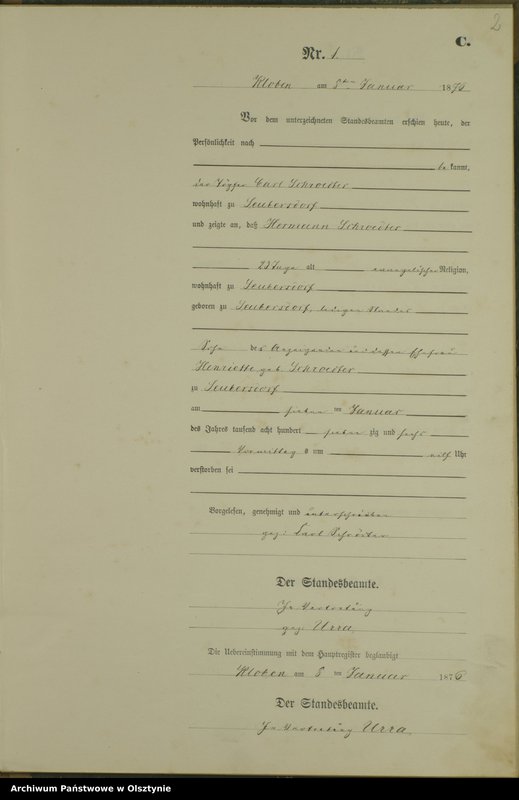 2
C.
Nr. 1
Kloben am 8ten Januar 1876
Vor dem unterzeichneten Standesbeamten erschien heute, der
Persönlichkeit nach
be kannt,
der Carl Schroeder
wohnhaft zu Leubersdorf
und zeigte an, daß Hermann Schroeder
23 Tage alt evangelischer Religion,
wohnhaft zu Leubersdorf
geboren zu Leubersdorf, ledigen Standes
Sohn des Anzeigenden und dessen Ehefrau
Henriette geb. Schroeder
zu Leubersdorf
am sieben ten Januar
des Jahres tausend acht hundert sieben zig und sechs
Vormittag s um elf Uhr
verstorben sei
Vorgelesen, genehmigt und unterschrieben
gez: Carl Schröder
Der Standesbeamte.
In Vertretung
gez: Urra
Die Uebereinstimmung mit dem Hauptregister beglaubigt
Kloben am 8 ten Januar 1876
Der Standesbeamte.
In Vertretung Urra
Archiwum Państwowe w Olsztynie